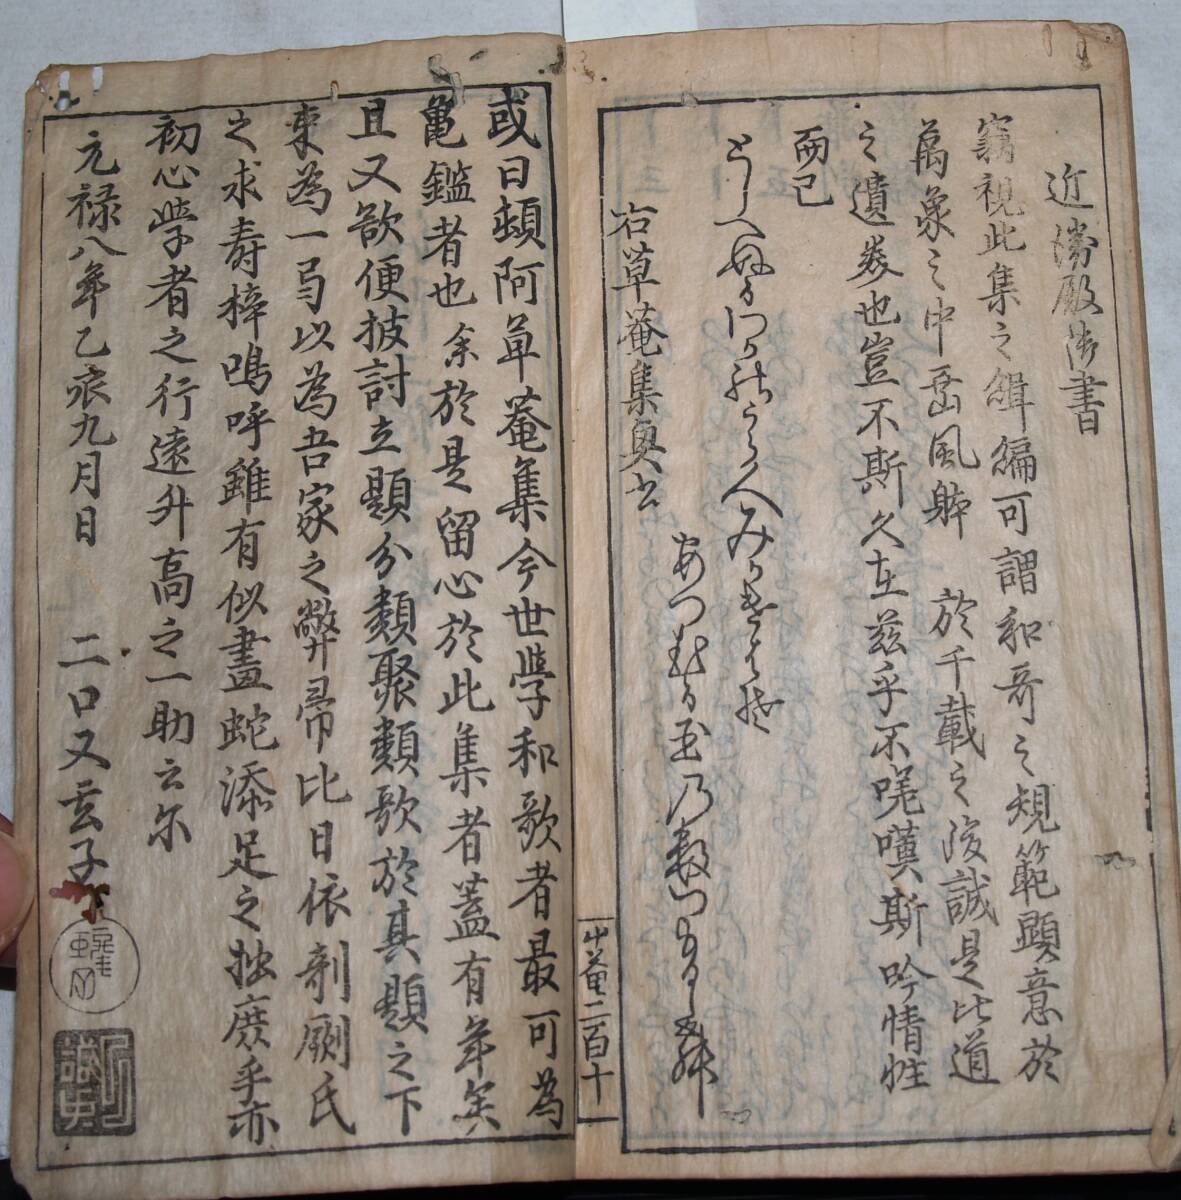 近衛殿御書
竊視此集之緝編可謂和哥之規範顕意於
萬象之中蚕風躰於千載之後誠是比道
之遺美也豈不斯久在茲乎不啻嘆斯吟情性
而已
とし
あつむる玉乃数
右草菴集奥書
草菴二百十一
或曰頓阿草菴集今世学和歌者最可為
亀鑑者也余於是留心於此集者蓋有年矣
且又欲便披討立題分類聚類歌於其題之下
束為一局以為吾家之弊帚比日依剞劂氏
之求壽梓嗚呼雖有似畫蛇添足之拙庶乎亦
初心学者之行遠升高之一助云尓
元禄八年乙亥九月日
二口又玄子